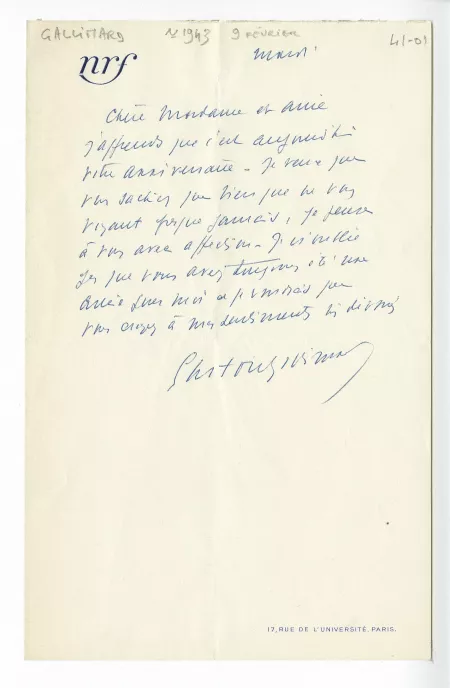 GALLIMARD N 1943 9 FÉVRIER 41-01
nrf
Mardi
Chère Madame et amie
j'apprends que c'est aujourd'hui
votre anniversaire - Je veux que
vous sachiez que bien que ne vous
voyant presque jamais, je pense
à vous avec affection - Je n'oublie
pas que vous avez toujours été une
amie pour moi et je voudrais que
vous croyez à mes sentiments très dévoués
Gaston Gallimard
17, RUE DE L'UNIVERSITÉ. PARIS.